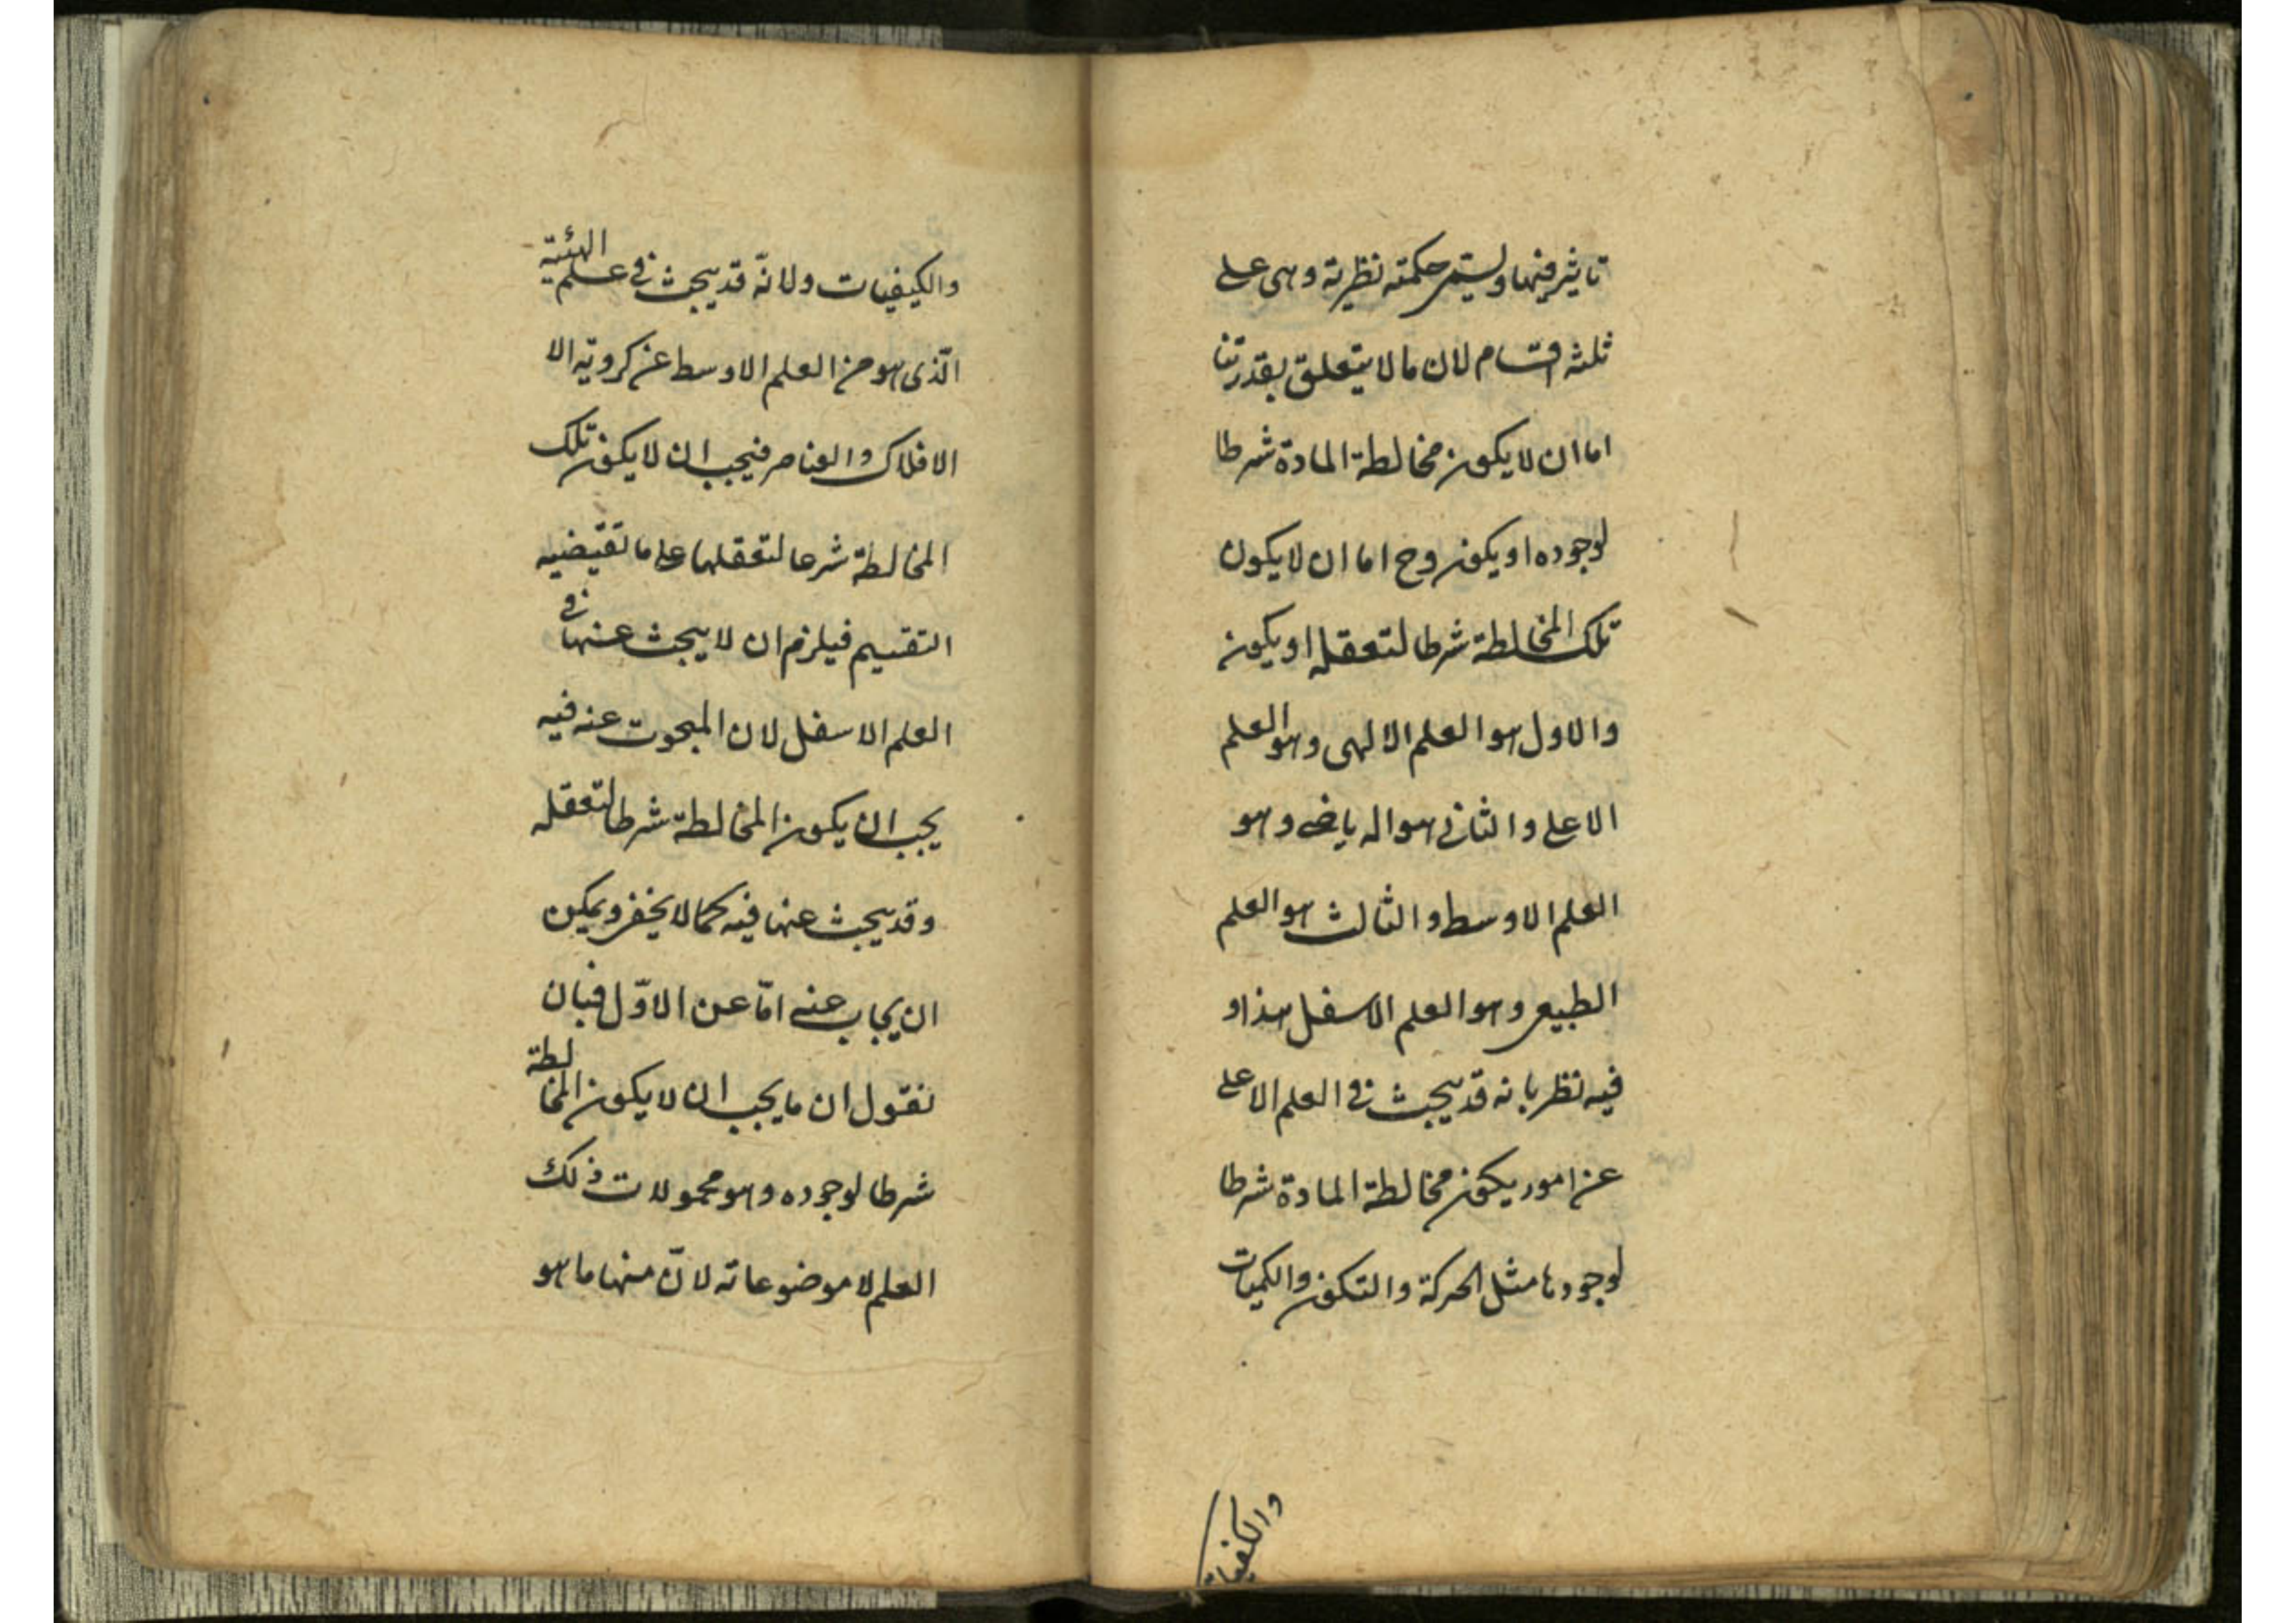 تاثير فيها ويسمى حكمته نظرية وهى على
ثلثه اقسام لان ما لا يتعلق بقدرتنا
اما ان لا يكون مخالطة المادة شرطا
لوجوده او يكون وح اما ان لا يكون
تلك المخالطة شرطا لتعقله او يكون
والاول هو العلم الالهى وهو العلم
الاعلى والثانى هو الرياضى وهو
العلم الاوسط والثالث هو العلم
الطبيعى وهو العلم الاسفل هذا و
فيه نظر بانه قد يبحث فى العلم الاعلى
عن امور يكون مخالطة المادة شرطا
لوجودها مثل الحركة والتكون والكميات
والكيفيات
والكيفيات ولانّه قد يبحث فى علم الهيئة
الّذى هو من العلم الاوسط عن كروية الا
الافلاك والعناصر فيجب ان لا يكون تلك
المخالطة شرطا لتعقلها على ما تقتضيه
التقسيم فيلزم ان لا يبحث عنها فى
العلم الاسفل لان المبحوث عنه فيه
يجب ان يكون المخالطة شرطا لتعقله
وقد يبحث عنها فيه كما لا يخفى ويمكن
ان يجاب عنه امّا عن الاوّل فبان
نقول ان ما يجب ان لا يكون المخالطة
شرطا لوجوده وهو محمولات ذلك
العلم لا موضوعاته لانّ منها ما هو